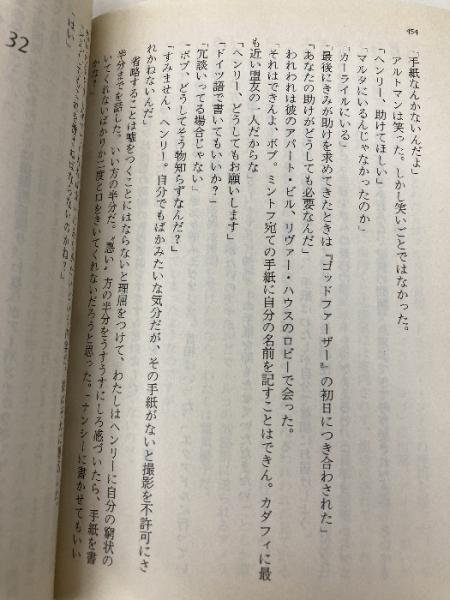 454
「手紙なんかないんだよ」
アルトマンは笑った。しかし笑いごとではなかった。
「ヘンリー、助けてほしい」
「マルタにいるんじゃなかったのか」
「カーライルにいる」
「最後にきみが助けを求めてきたときは『ゴッドファーザー』の初日につき合わされた」
「あなたの助けがどうしても必要なんだ」
われわれは彼のアパート・ビル、リヴァー・ハウスのロビーで会った。
「それはできんよ、ボブ。ミントフ宛ての手紙に自分の名前を記すことはできん。カダフィに最
も近い盟友の一人だからな」
「ヘンリー、どうしてもお願いします」
「ドイツ語で書いてもいいか?」
「冗談いってる場合じゃない」
「ボブ、どうしてそう物知らずなんだ?」
「すみません、ヘンリー。自分でもばかみたいな気分だが、その手紙がないと撮影を不許可にさ
れかねないんだ」
省略することは嘘をつくことにはならないと理屈をつけて、わたしはヘンリーに自分の窮状の
半分までを話した。いい方の半分だ。〝悪い〟方の半分をうすうすにしろ感づいたら、手紙を書
いてくれないばかりか二度と口をきいてくれないだろうと思った。「ナンシーに書かせてもいい
かな?」
「はい」
32